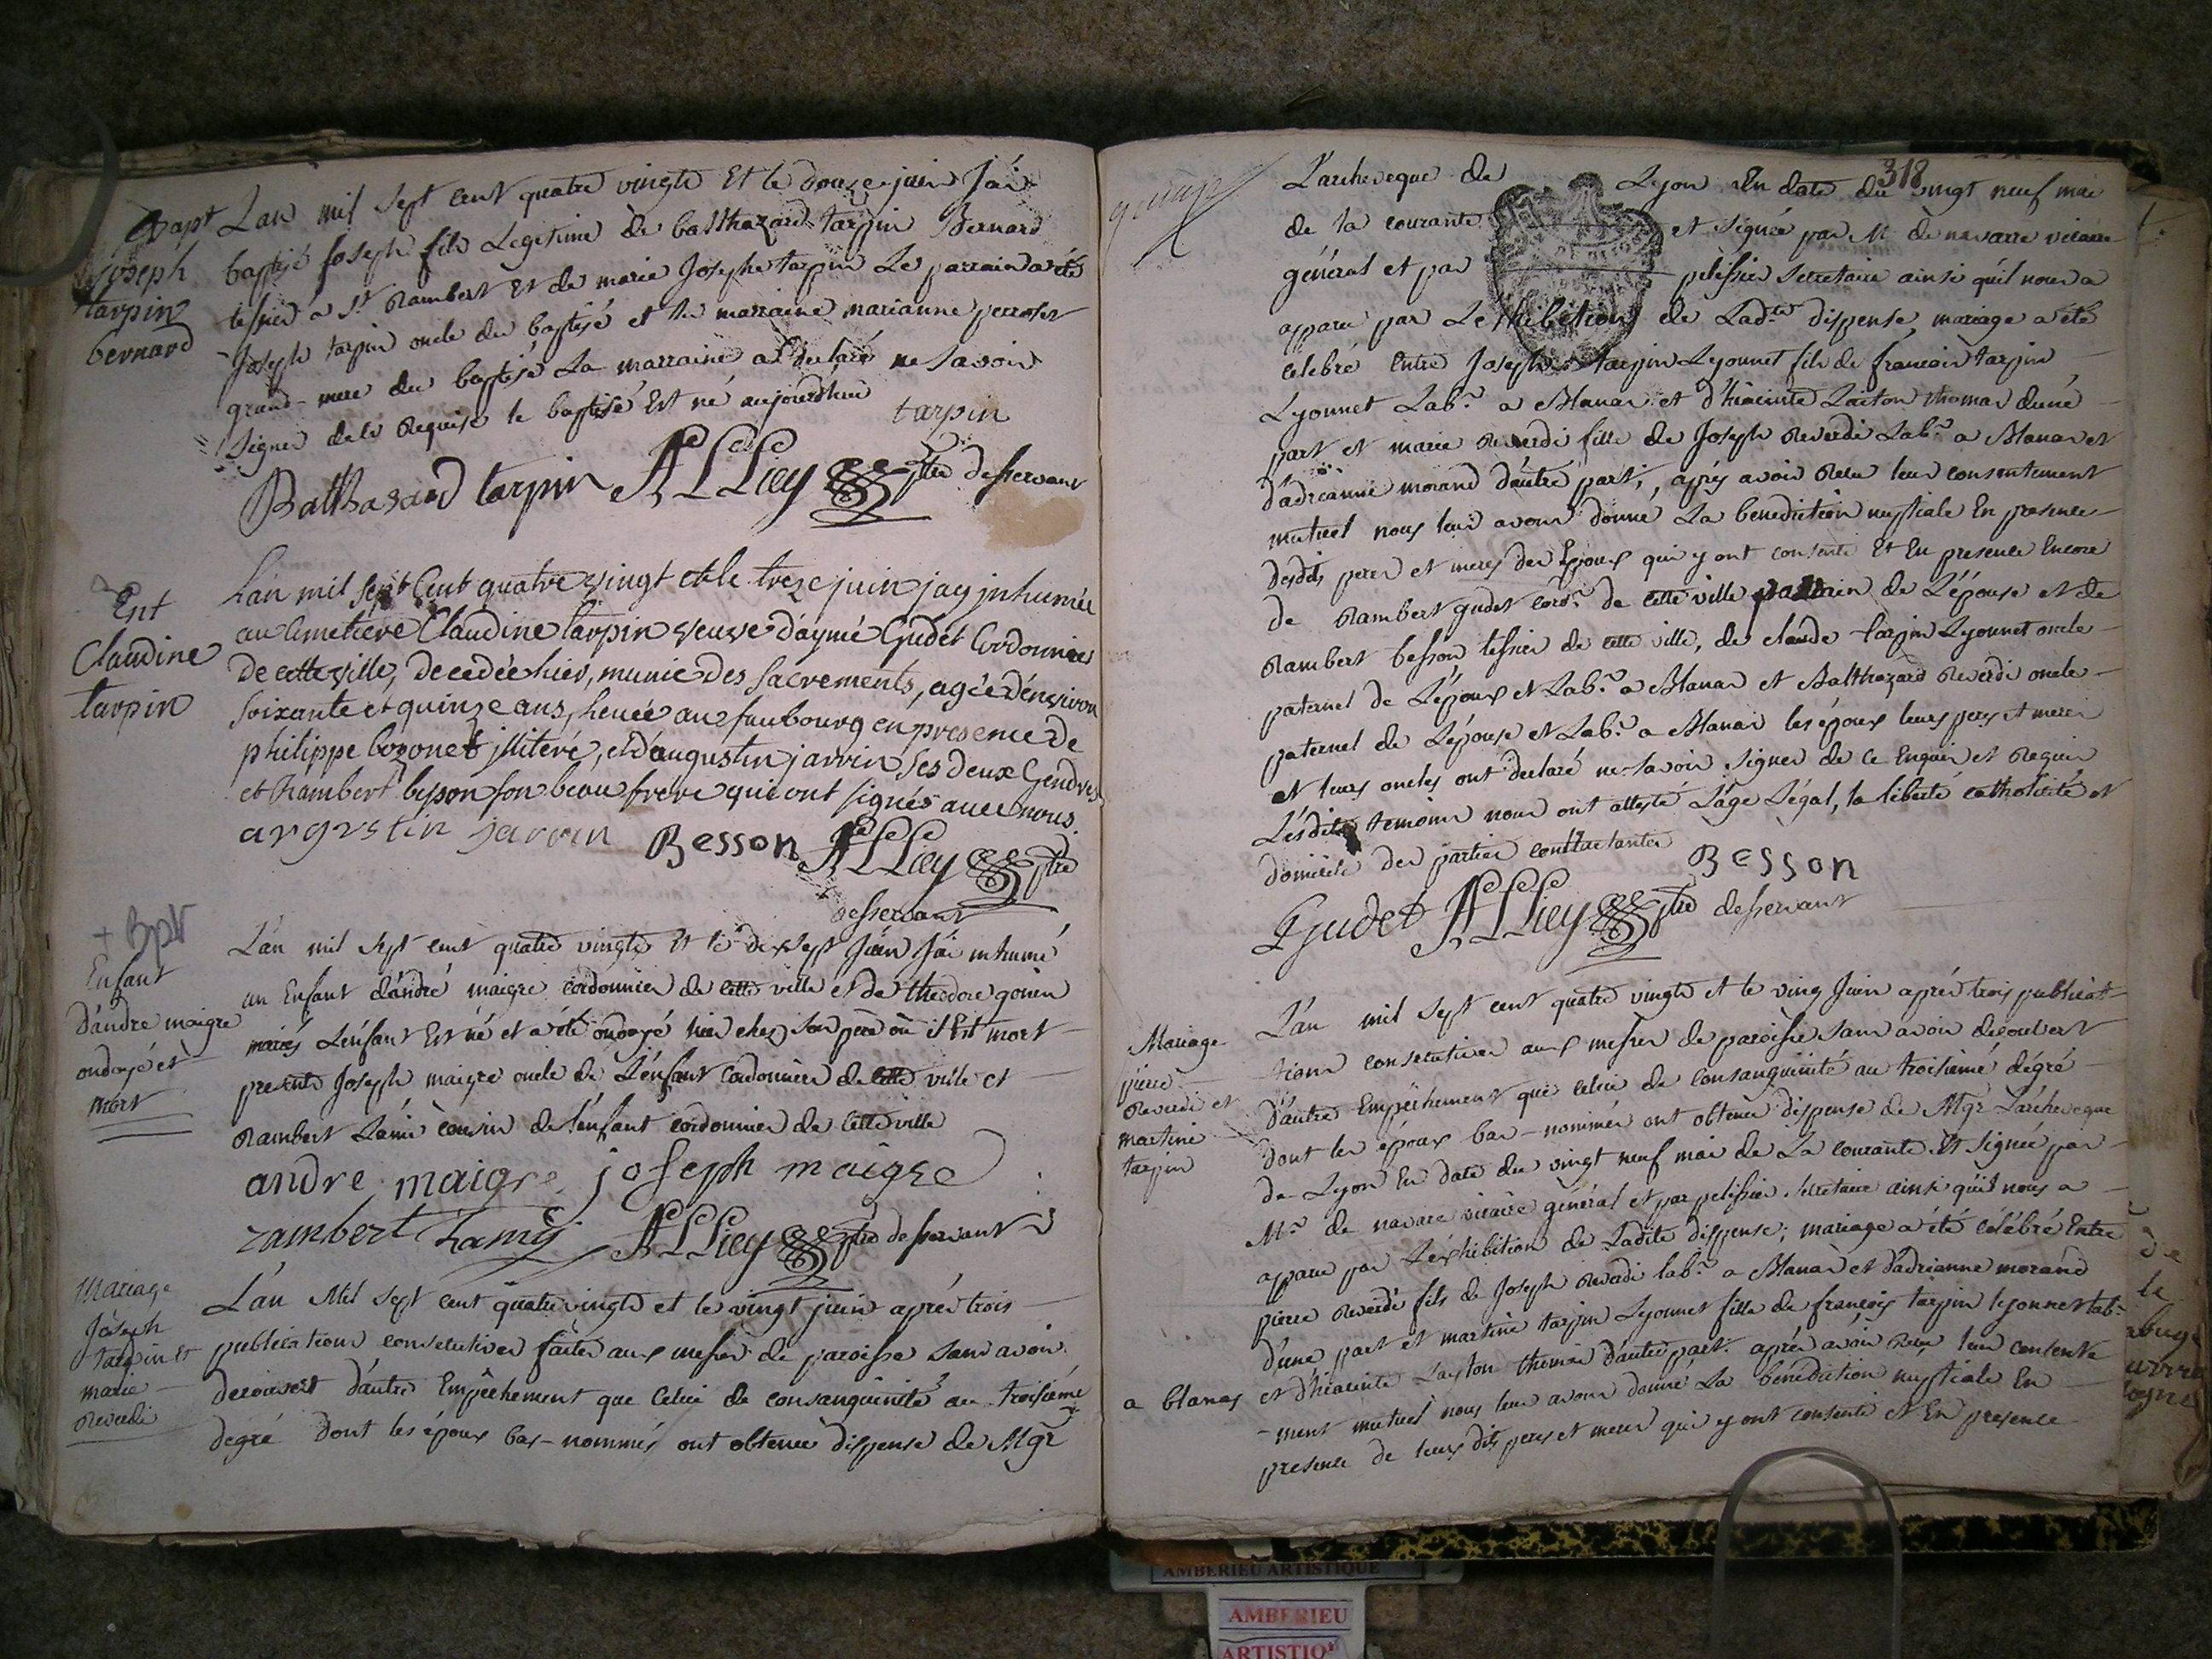 Bapt
Joseph
tarpin
bernard
Lan mil sept cent quatre vingts Et le douze juin Jái
baptisé Joseph fils Legitime de balthazard tarpin Bernard
tessier á St Rambert Et de marie Josephe tarpin Le parrain a été
Joseph tarpin oncle du baptisé et la marraine marianne
grand-mere du baptisé La marraine a declaré ne savoir
signer de ce Requise le baptisé Est né aujourdhui
tarpin
Balthasard tarpin ptre desservant
Ent
Claudine
tarpin
Lán mil sept Cent quatre vingt et le treze juin jay jnhumée
au Cimetiere Claudine tarpin veuve dáymé Gudet Cordonnier
de cette ville, decedée hier, munie des Sacrements, agée dénviron
soixante et quinze ans, au faubourg en presence de
philippe bozonet jllitéré, et dáugustin jarrin Ses deux Gendres
et Rambert besson son beau frere qui ont signés avec nous.
avgvstin jarrin Besson ptre
desservant
+ Bpt
Enfant
dándre maigre
ondoyé et
mort
Lán mil sept cent quatre vingts Et le dix sept Juin Jái inhumé
un Enfant dándré maigre cordonnier de cette ville et de théodore gonin
mariés Lénfant Est né et a été ondoyé hier chez son pere où il Est mort
presents Joseph maigre oncle de Lénfant Cordonnier de cette ville et
Rambert Lámi cousin de lénfant cordonnier de cette ville
andre maigre joseph maigre
rambert Lamy ptre desservant
Mariage
Joseph
tarpin Et
marie
Reverdi
Lán Mil sept cent quatre vingts et le vingt juin aprés trois
publications consecutives faites aux messes de paroisse sans avoir
decouvert dáutre Empêchement que Celui de consanguinité au troisiéme
degré dont les époux bas-nommés ont obtenu dispense de Mgr
318
Lárcheveque de Lyon En date du vingt neuf mai
de la courante et signée par Mr de navarre vicaire
général et par pelissier secretaire ainsi quíl nous a
apparu par Léxhibition de Ladte dispense, mariage a été
célébré Entre Joseph tarpin Lyonnet fils de françois tarpin
Lyonnet Labr a Blanas et dhiacinte Laiton thomas dúne
part et marie Reverdi fille de Joseph Reverdi Labr a Blanas et
dádrianne morand dáutre part, aprés avoir Reçu leur consentement
mutuel nous leur avons donné La benediction nuptiale En presence
desdits peres et meres des Epoux qui y ont consenti Et En presence Encore
de Rambert gudet cordr de cette ville parrain de Lépouse et de
Rambert besson tessier de cette ville, de claude tarpin Lyonnet oncle
paternel de Lépoux et Labr a Blanas et Balthazard Reverdi oncle
paternel de Lépouse et Labr a Blanas les époux leurs peres et meres
et leurs oncles ont declaré ne savoir signer de ce Enquis et Requis
Lésdits temoins nous ont attesté Láge Légal, la liberté catholicité et
domicile des parties contractantes
Besson
Gudet ptre desservant
Mariage
pierre
Reverdi et
martine
tarpin
Lán mil sept cent quatre vingts et le vingt Juin aprés trois publicat-
-tions consecutives aux messes de paroisse sans avoir decouvert
dáutre Empêchement que celui de consanguinité au troisiémé dégré
dont les époux bas-nommés ont obtenu dispense de Mgr Lárcheveque
de Lyon En date du vingt neuf mai de La courante Et signée par
Mr de navare vicaire général et par pelissier secretaire ainsi quíl nous a
apparu par Léxhibition de Ladite dispense; mariage a été célébré Entre
pierre Reverdi fils de Joseph Reverdi labr a Blanas et dádrianne morand
dúne part et martine tarpin Lyonnet fille de françois tarpin lyonnet labr
a blanas et dhiacinte Laiton thomas dáutre part. aprés avoir Reçu leur consente
-ment mutuel nous leur avons donné La bénédiction nuptiale En
presence de leurs dits peres et meres qui y ont consenti et En presence
AMBERIEU ARTISTIQUE
AMBERIEU
ARTISTIQ